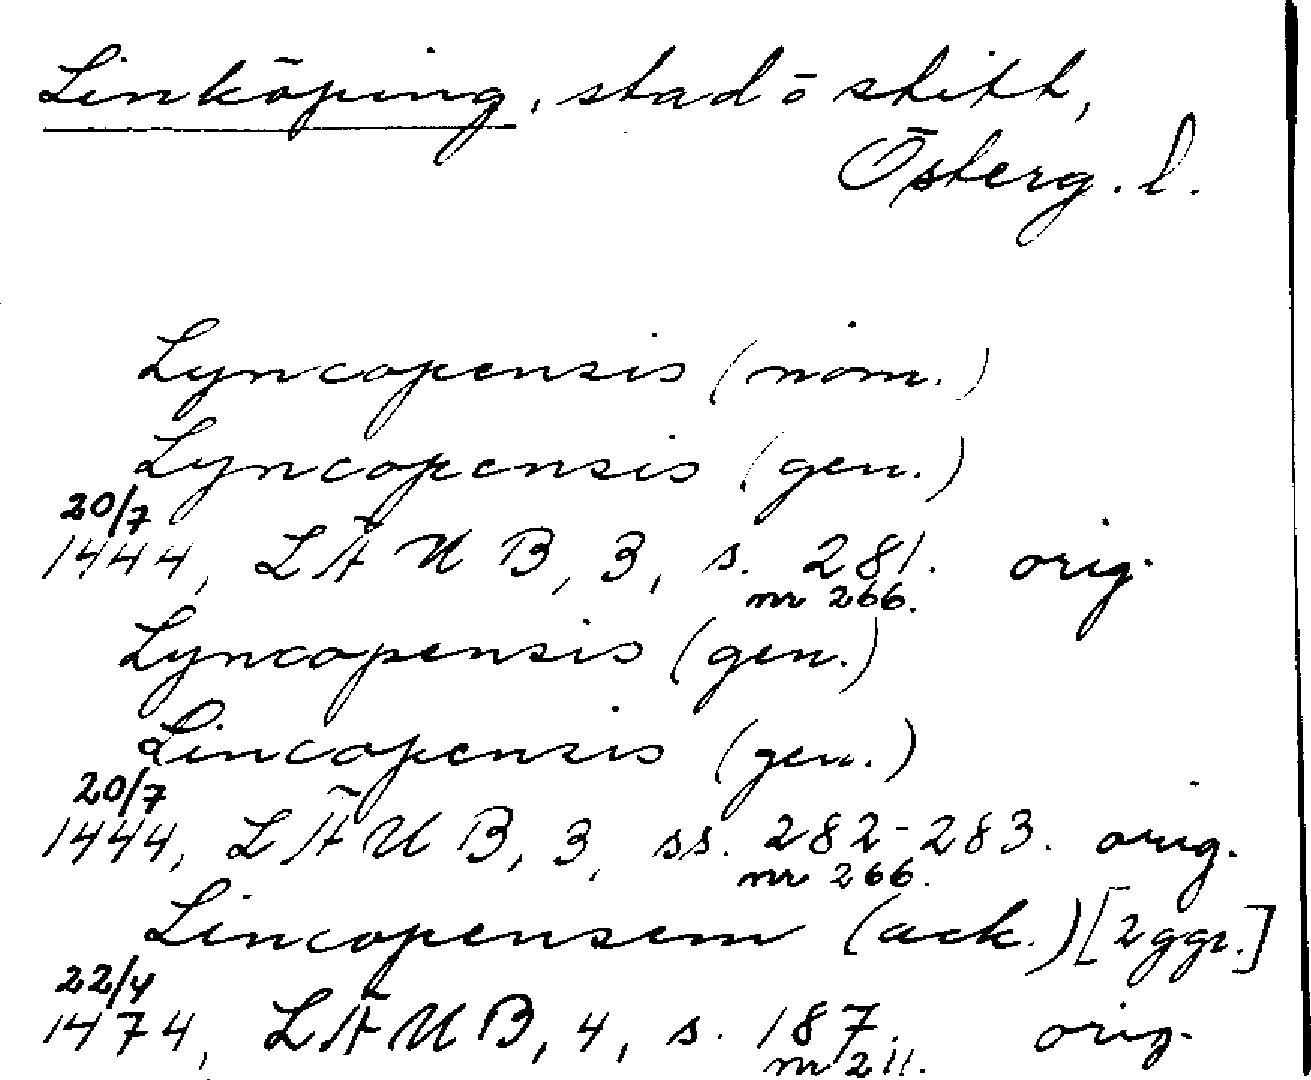 Linköping, stad o stift,
Österg. l.
Lyncopensis (nom.)
Lyncopensis (gen.)
20/7
1444, LÄUB, 3, s. 281. orig.
nr 266.
Lyncopensis (gen.)
Lincopensis (gen.)
20/7
1444, LÄUB, 3, ss. 282-283. orig.
nr 266.
Lincopensem (ack.) [2 ggr.]
22/4
1474, LÄUB, 4, s. 187. orig.
nr 211.